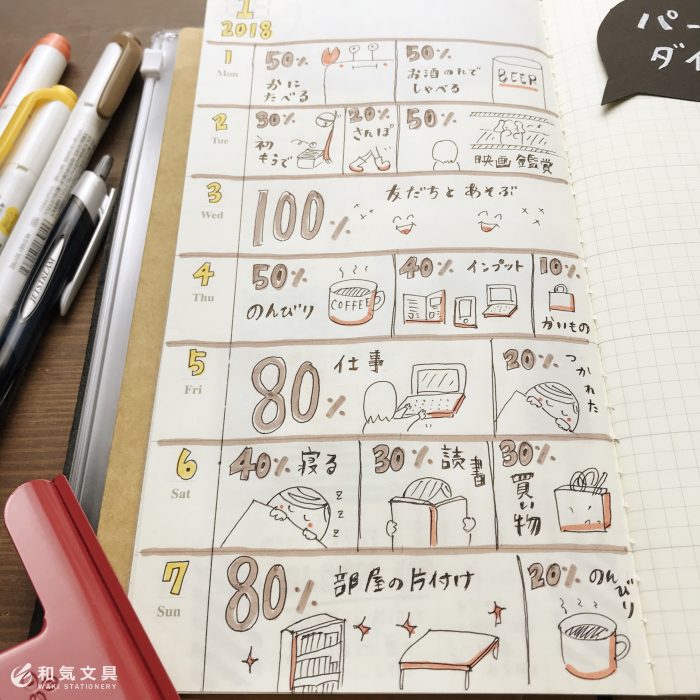 1
2018
パー
ダイ
1
Mon
50%
かに
たべる
50%
お酒のんで
しゃべる
BEER
2
Tue
30%
初
もうで
20%
さんぽ
50%
映画鑑賞
3
Wed
100%
友だちとあそぶ
4
Thu
50%
のんびり
COFFEE
40% インプット
10%
かいもの
5
Fri
80%
仕事
20%
つかれた
6
Sat
40% 寝る
z
z
z
30% 読書
30%
買い物
7
Sun
80% 部屋の片付け
20% のんびり
JETSTREAM
和気文具
WAKI STATIONERY